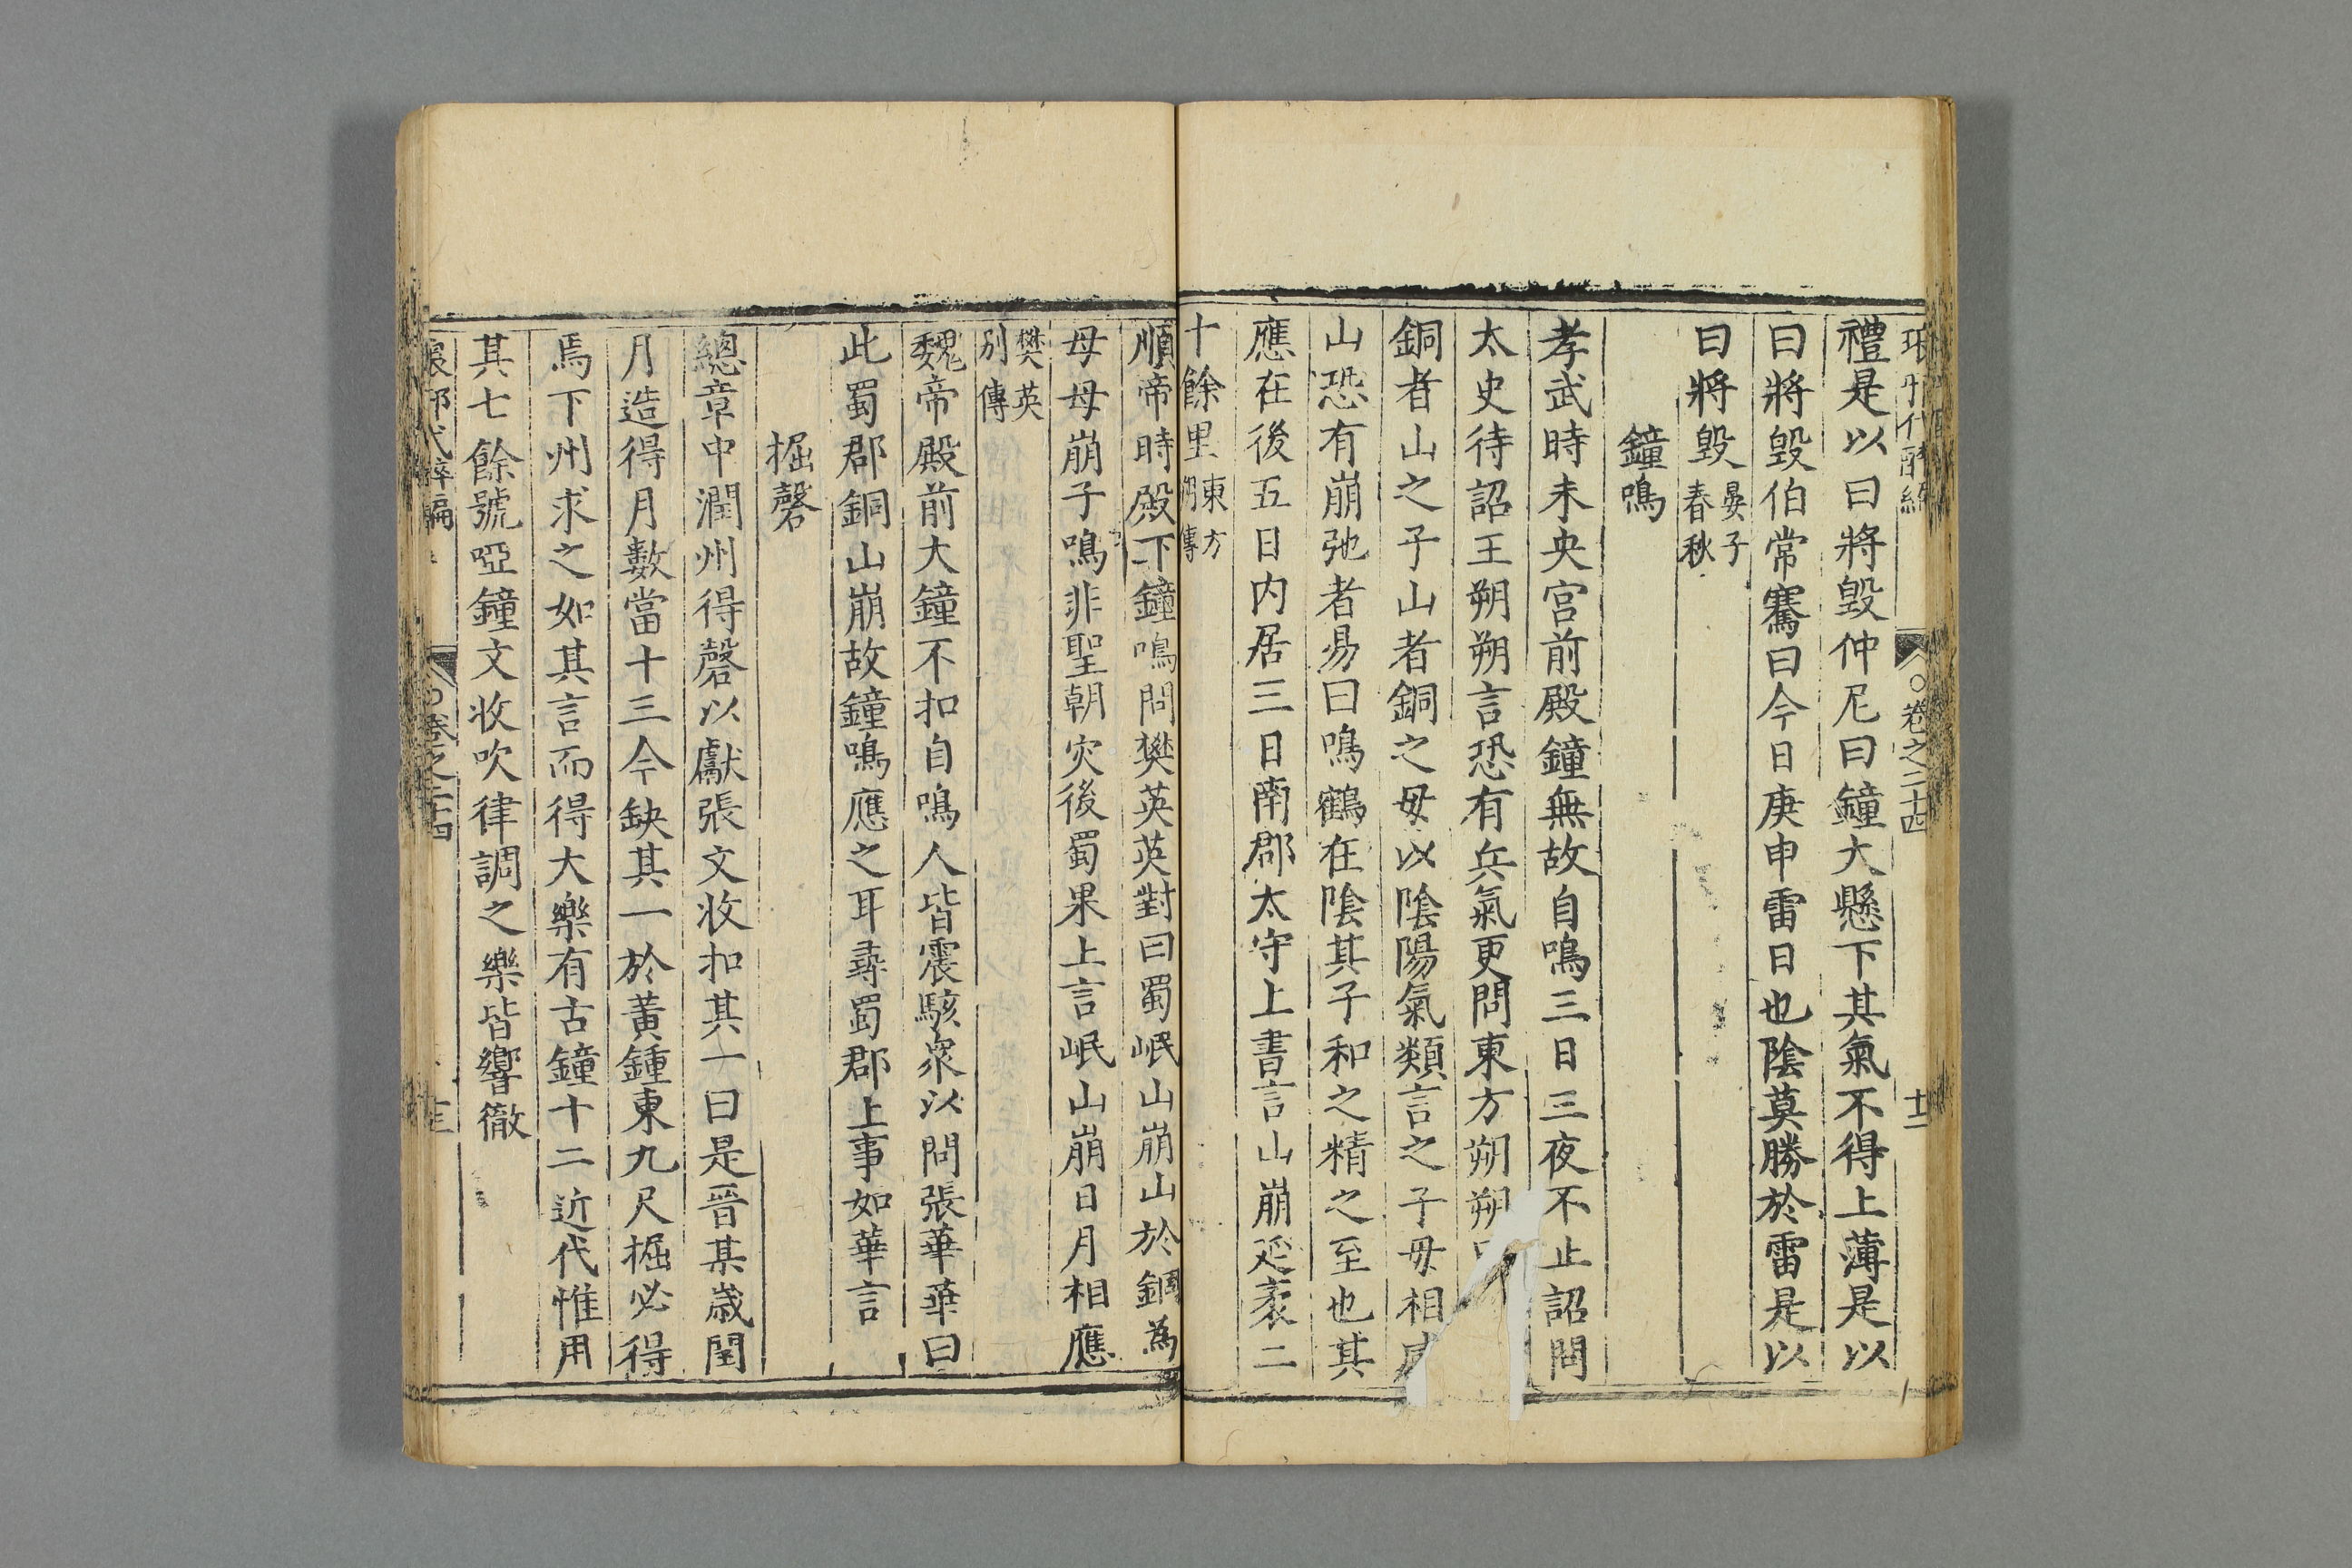 卷之二十四
禮是以曰將毀仲尼曰鐘大懸下其氣不得上薄是以
曰將毀伯常騫曰今日庚申雷日也陰莫勝於雷是以
曰將毀晏子春秋
鐘鳴
孝武時未央宫前殿鐘無故自鳴三日三夜不止詔問
太史待詔王朔朔言恐有兵氣更問東方朔朔
銅者山之子山者銅之母以陰陽氣類言之子母相
山恐有崩弛者易曰鳴鶴在陰其子和之精之至也其
應在後五日内居三日南郡太守上書言山崩延袤二
十餘里東方朔傳
順帝時殿下鐘鳴問樊英英對曰蜀岷山崩山於銅為
母母崩子鳴非聖朝灾後蜀果上言岷山崩日月相應
樊英别傳
魏帝殿前大鐘不扣自鳴人皆震駭衆以問張華華曰
此蜀郡銅山崩故鐘鳴應之耳尋蜀郡上事如華言
掘磬
總章中潤州得磬以獻張文收扣其一曰是晉某歲閏
月造得月數當十三今缺其一於黃鍾東九尺掘必得
焉下州求之如其言而得大樂有古鐘十二近代惟用
其七餘號啞鐘文收吹律調之樂皆響徹
琅邪代醉編 卷之二十四 十三